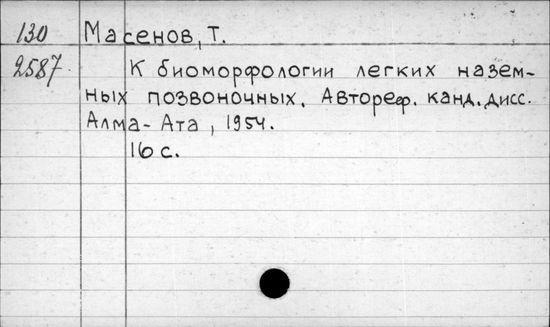 130 Масенов, Т.
2587 К биоморфологии легких назем-
ных позвоночных. Автореф. канд. дисс.
Алма-Ата, 1954.
16 с.